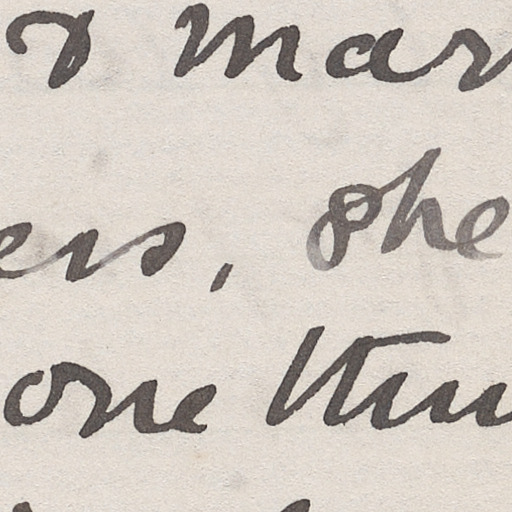 & mar
ers, she
one thin